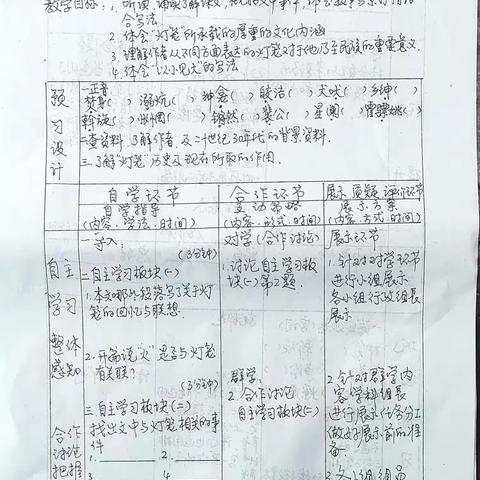 教学目标：1. 听读、诵读了解课文
合写法
2. 体会“灯笼”所承载的厚重的文化内涵
3. 理解作者从不同方面表达的灯笼对于他乃至民族的重要意义.
4. 体会“以小见大”的写法
预习设计
一正音
焚身( ) 溺炕( ) 神龛( ) 皎洁( ) 犬吠( ) 乡绅( )
斡旋( ) 锵然( ) 裴公( ) 星阑( ) 霍骠姚( )
二查资料. 了解作者. 及二十世纪30年代的背景资料.
三. 了解“灯笼”历史及现在所取的作用.
自学环节
自学指导
(内容. 学法. 时间)
合作环节
互动策略
(内容. 形式. 时间)
展示 质疑 评价环节
展示方案
(内容. 方式. 时间)
一导入:
(3分钟)
二自主学习板块(一)
1. 本文哪些段落写了关于灯
笼的回忆与联想.
2. 开篇说“火”是否与灯笼
有关联?
(3分钟)
三自主学习板块(二)
找出文中与灯笼相关的事
件
1. 2.
自主学习
整体感知
合作讨论
把握
对学(合作讨论)
1. 讨论自主学习板
块(一)第2题.
群学:
2. 合作讨论
自主学习板块(二)
展示环节
1. 针对对学环节
进行小组展示
各小组行政组长
展示
2. 针对群学内
容. 学科组长
进行展示任务分工
做好展示前的准
备.
3. 各小组组员